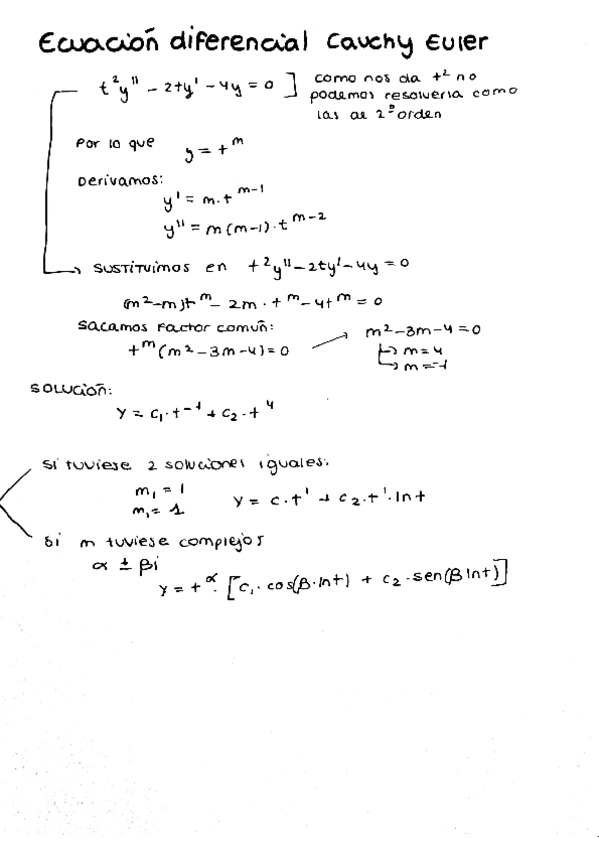 Ecuación diferencial Cauchy Euler
t²y'' - 2ty' - 4y = 0 ] como nos da t² no
podemos resolverla como
las de 2º orden
Por lo que y = t^m
Derivamos:
y' = m·t^(m-1)
y'' = m(m-1)·t^(m-2)
→ sustituimos en t²y'' - 2ty' - 4y = 0
(m²-m)t^m - 2m·t^m - 4t^m = 0
Sacamos factor común:
t^m(m² - 3m - 4) = 0 → m² - 3m - 4 = 0
↳ m = 4
↳ m = -1
Solución:
Y = c₁·t^-1 + c₂·t^4
Si tuviese 2 soluciones iguales:
m₁ = 1
m₁ = 1 Y = c·t' + c₂·t'·lnt
Si m tuviese complejos
α ± βi
Y = t^α·[c₁·cos(β·lnt) + c₂·sen(βlnt)]